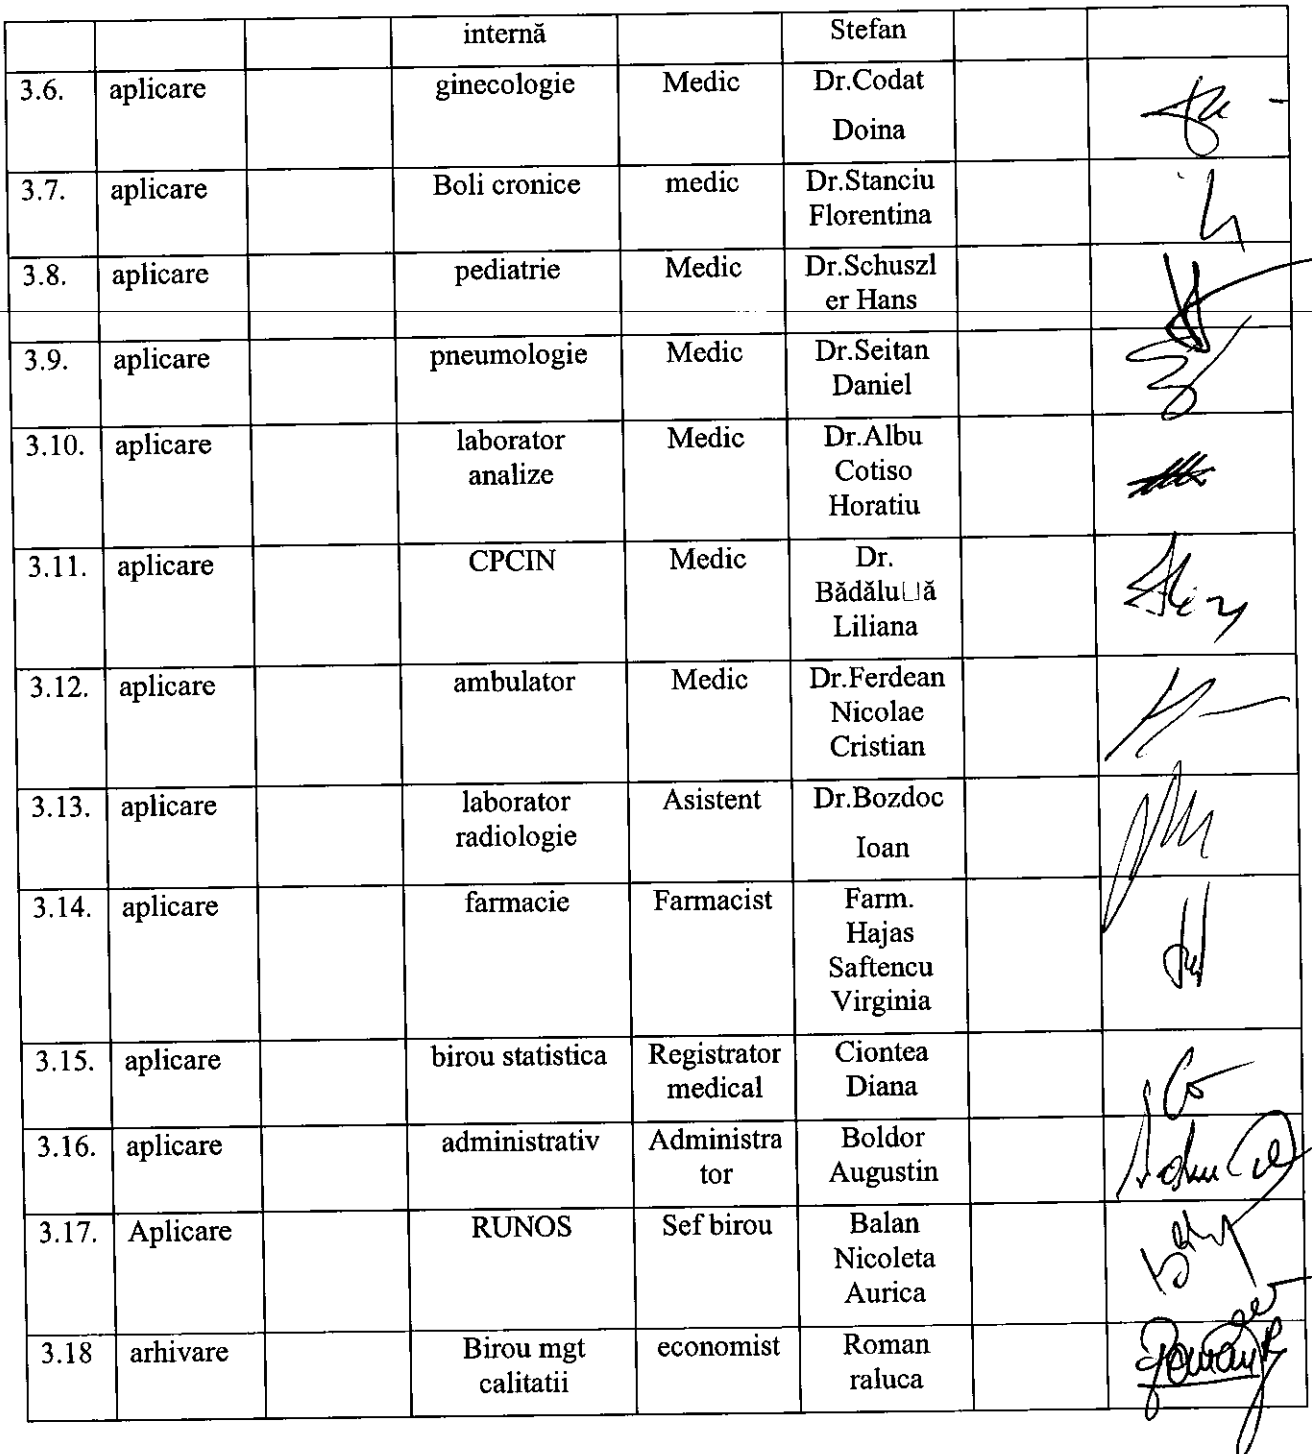 internă Stefan
3.6. aplicare ginecologie Medic Dr.Codat
Doina
3.7. aplicare Boli cronice medic Dr.Stanciu
Florentina
3.8. aplicare pediatrie Medic Dr.Schuszl
er Hans
3.9. aplicare pneumologie Medic Dr.Seitan
Daniel
3.10. aplicare laborator Medic Dr.Albu
analize Cotiso
Horatiu
3.11. aplicare CPCIN Medic Dr.
Bădălu␣ă
Liliana
3.12. aplicare ambulator Medic Dr.Ferdean
Nicolae
Cristian
3.13. aplicare laborator Asistent Dr.Bozdoc
radiologie Ioan
3.14. aplicare farmacie Farmacist Farm.
Hajas
Saftencu
Virginia
3.15. aplicare birou statistica Registrator Ciontea
medical Diana
3.16. aplicare administrativ Administra Boldor
tor Augustin
3.17. Aplicare RUNOS Sef birou Balan
Nicoleta
Aurica
3.18 arhivare Birou mgt economist Roman
calitatii raluca